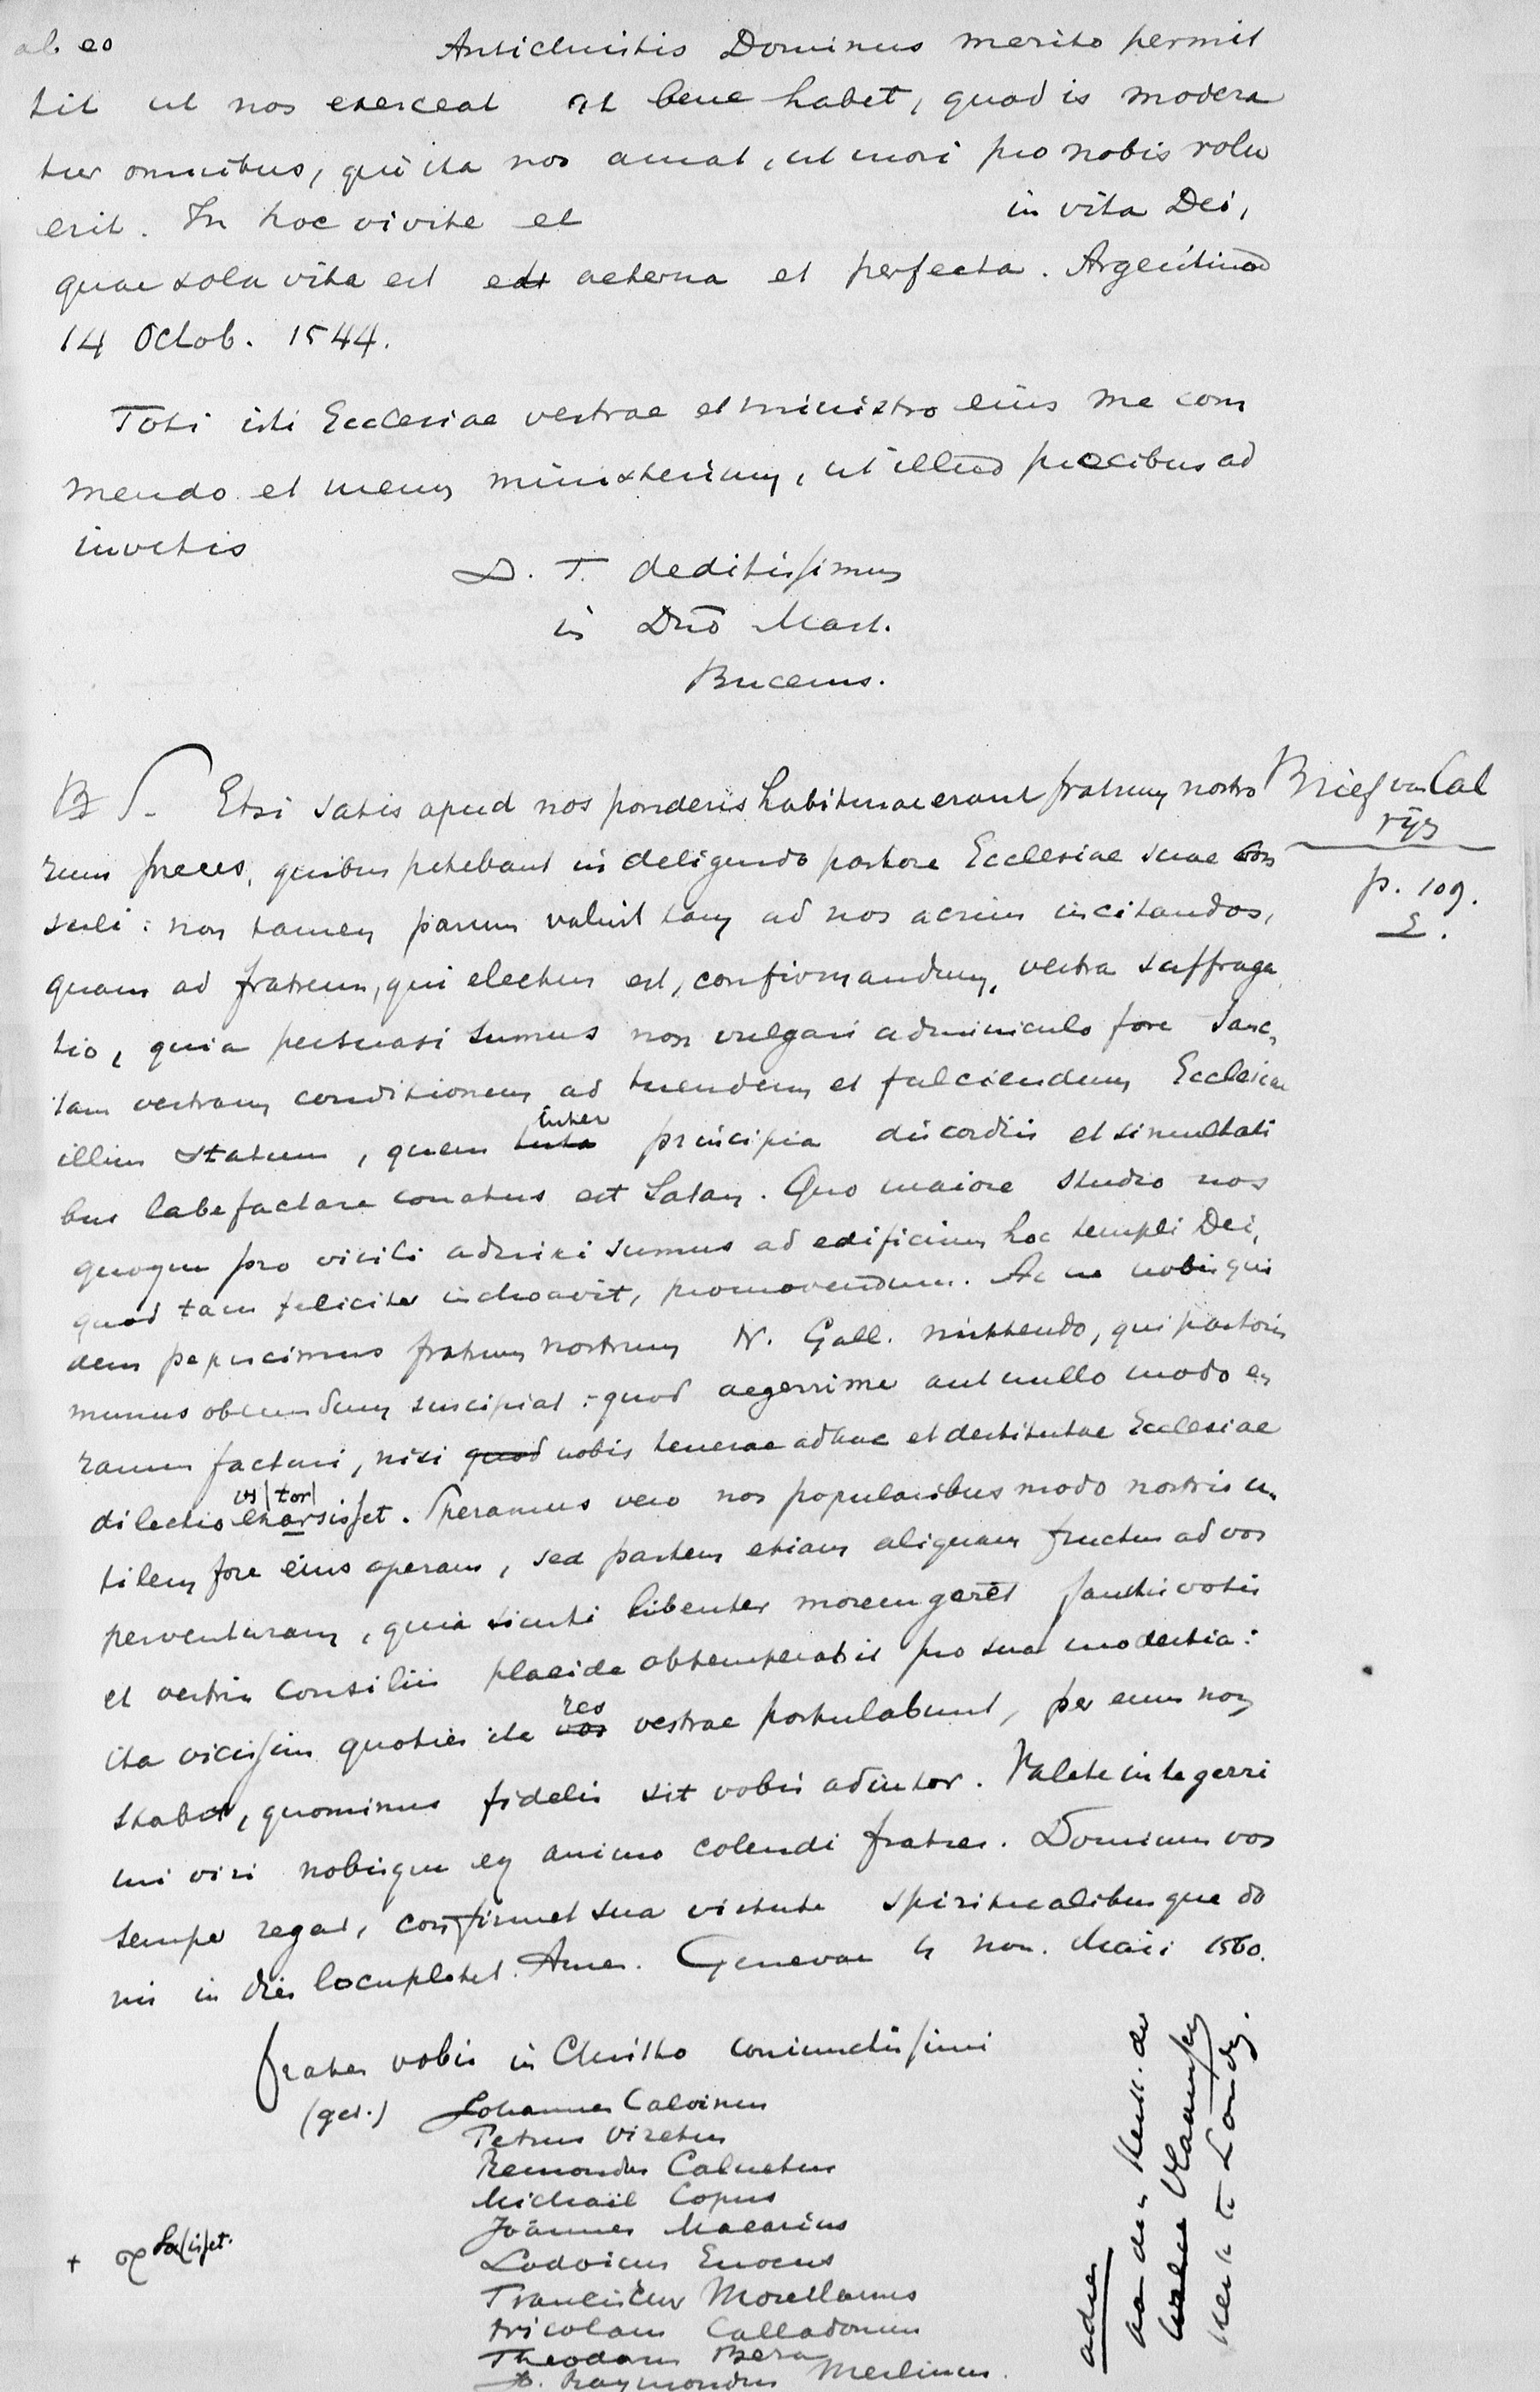 ab eo Antichristis Dominus merito permit
tit ut nos exerceat at bene habet, quod is modera
tur omnibus, qui ita nos amat, ut mori pro nobis volu
erit. In hoc vivite et in vita Dei,
quae sola vita est est aeterna et perfecta. Argentinae
14 Octob. 1544.
Toti isti Ecclesiae vestrae et ministro eius me com
mendo et meum ministerium, ut illud precibus ad
iuvetis
D. T. deditissimus
in Dno Mart.
Bucerus.
S. Etsi satis apud nos ponderis habiturae erant fratrum nostro
rum preces, quibus petebant in deligendo pastore Ecclesiae suae con
suli: non tamen parum valuit tam ad nos acrius incitandos,
quam ad fratrem, qui electus est, confirmandum, vestra suffraga
tio, quia persuasi sumus non vulgari adminiculo fore sanc
tam vestram conditionem ad tuendum et fulciendum Ecclesiae
illius statum, quem inter principia discordiis et simultati
bus labefactare conatus est Satan. Quo maiore studio nos
quoque pro virili adnixi sumus ad edificium hoc templi Dei,
quod tam feliciter inchoavit, promovendum. Ac ne nobis qui
dem pepercimus fratrem nostrum N. Gall. mittendo, qui pastoris
munus obeundum suscipiat: quod aegerrime aut nullo modo e
ramus facturi, nisi quod nobis tenerae adhuc et destitutae Ecclesiae
dilectio extorsisset. Speramus vero non popularibus modo nostris u
tilem fore eius operam, sed partem etiam aliquam fructus ad vos
perventuram, quia sicuti libenter morem geret sanctis votis
et vestris consiliis placide obtemperabit pro sua modestia:
ita vicissim quoties ita res vestrae postulabunt, per eum non
stabit, quominus fidelis sit vobis adiutor. Valete integerri
mi viri nobisque ex animo colendi fratres. Dominus vos
semper regat, confirmet sua virtute spiritualibusque do
nis in dies locupletet. Amen. Genevae 4 non. Maii 1560.
fratres vobis in Christo coniunctissimi
(get.) Johannes Calvinus
Petrus Viretus
Remondus Calvetus
Michaël Copus
Joannes Macarius
Lodovicus Enocus
Franciscus Morellanus
Nicolaus Calladonus
Theodorus Beza
Raymondus Merlinus.
Brief van Cal
vijn
p. 109.
adres
aan den Kerk. der
Vlaamsche
Kerk te Londen.